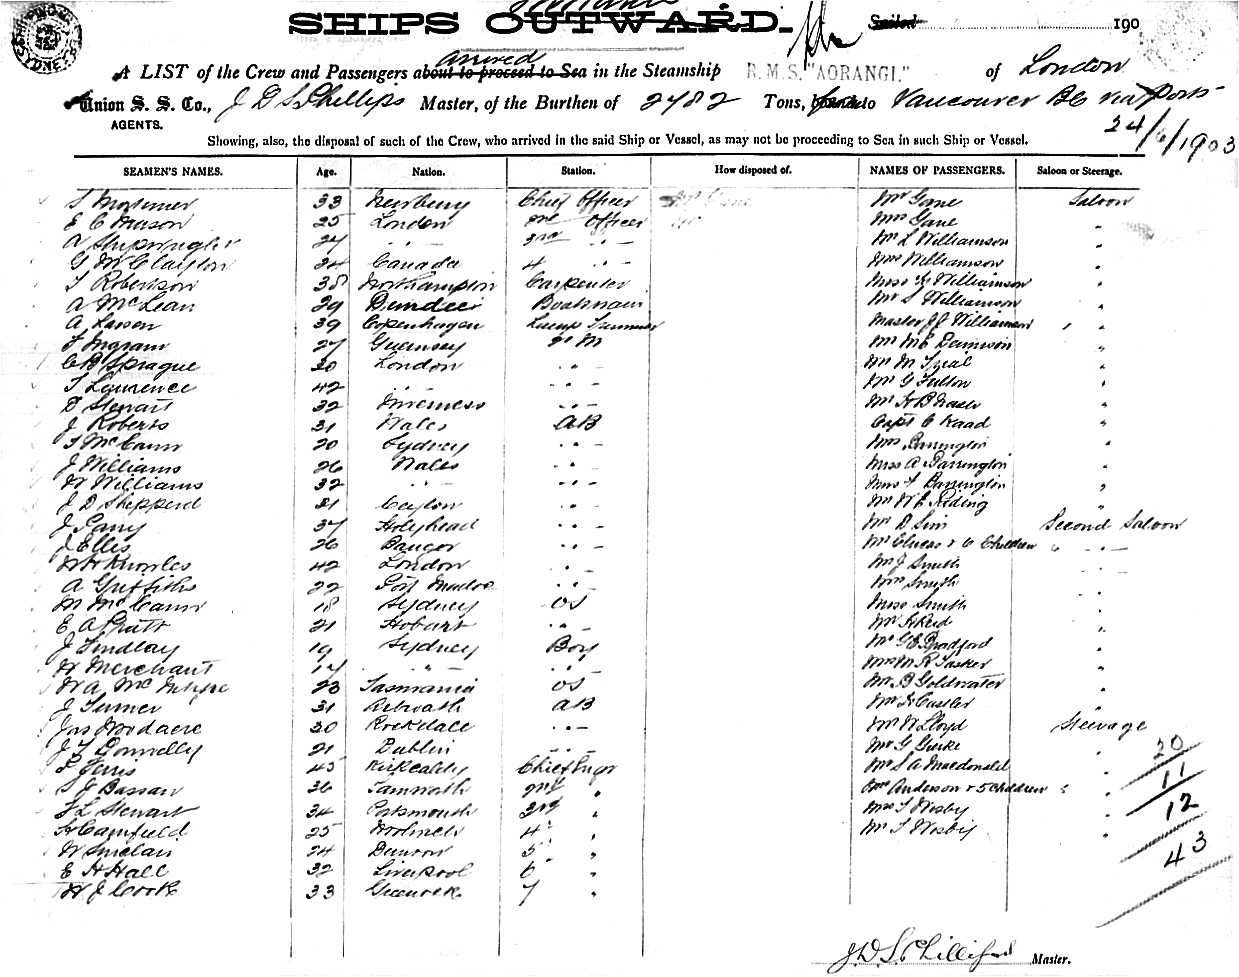 Inward
SHIPS OUTWARD. Sailed 190
arrived
A LIST of the Crew and Passengers about to proceed to Sea in the Steamship R.M.S. "AORANGI." of London
Union S. S. Co., J D S Phillips Master, of the Burthen of 2782 Tons, to Vancouver BC via Ports
AGENTS.
24/6/1903
Showing, also, the disposal of such of the Crew, who arrived in the said Ship or Vessel, as may not be proceeding to Sea in such Ship or Vessel.
SEAMEN'S NAMES. Age. Nation. Station. How disposed of. NAMES OF PASSENGERS. Saloon or Steerage.
T Mortimer 33 Newbury Chief Officer Mr Gane Saloon
E C Mason 25 London 2nd Officer Mrs Gane "
A 27 " - 3rd " - Mr L Williamson "
G McClayton 24 Canada 4 " - Mrs Williamson "
T Robertson 38 Northampton Carpenter Miss Williamson "
A McLean 29 Dundee Boatswain Mr S Williamson "
A Larsen 39 Copenhagen Lamp Trimmer Master J J Williamson " "
T Ingram 27 Guernsey Q M Mr M E Dennison "
C B Sprague 20 London " - Mr M "
T Laurence 42 " - " - Mr G Fulton "
D Stewart 32 Inverness " - Mr H B "
J Roberts 31 Wales AB Capt C "
T McCann 20 Sydney " - Mrs Barrington "
J Williams 26 Wales " - Miss A Barrington "
W Williams 32 " - " - Miss F Barrington "
J D Shepperd 21 Ceylon " - Mr W E Riding "
J Parry 37 Holyhead " - Mr D Sim Second Saloon
J Ellis 26 Bangor " - Mr & 6 Children " " -
W H Knowles 42 London " - Mr J Smith " -
A Griffiths 22 Port Madoc " - Mrs Smith "
M McCann 18 Sydney OS Miss Smith "
E A Pratt 21 Hobart " - Mr H Reid "
J Findlay 19 Sydney Boy Mr G E Bradford "
W Merchant 17 " - " - Mrs M R Tasker "
W A McIntyre 23 Tasmania OS Mr B Goldwater "
J Turner 31 AB Mr H Castler "
Jas Woodacre 30 Rockdale " - Mr W Lloyd Steerage
J T Connelly 21 Dublin " - Mr G "
Ferris 45 Kirkcaldy Chief Engr Mr S A Macdonald "
S J Bassan 36 Tamworth 2nd " Mrs Anderson & 5 Children " "
F L Stewart 34 Portsmouth 3rd " Mrs T Wesby "
H Camfield 25 Woolwich 4 " Mr T Wesby "
W Sinclair 24 Dunoon 5 "
E H Hall 32 Liverpool 6 "
W J Cook 33 Greenock 7 "
20
11
12
43
J.D.S. Phillips Master.